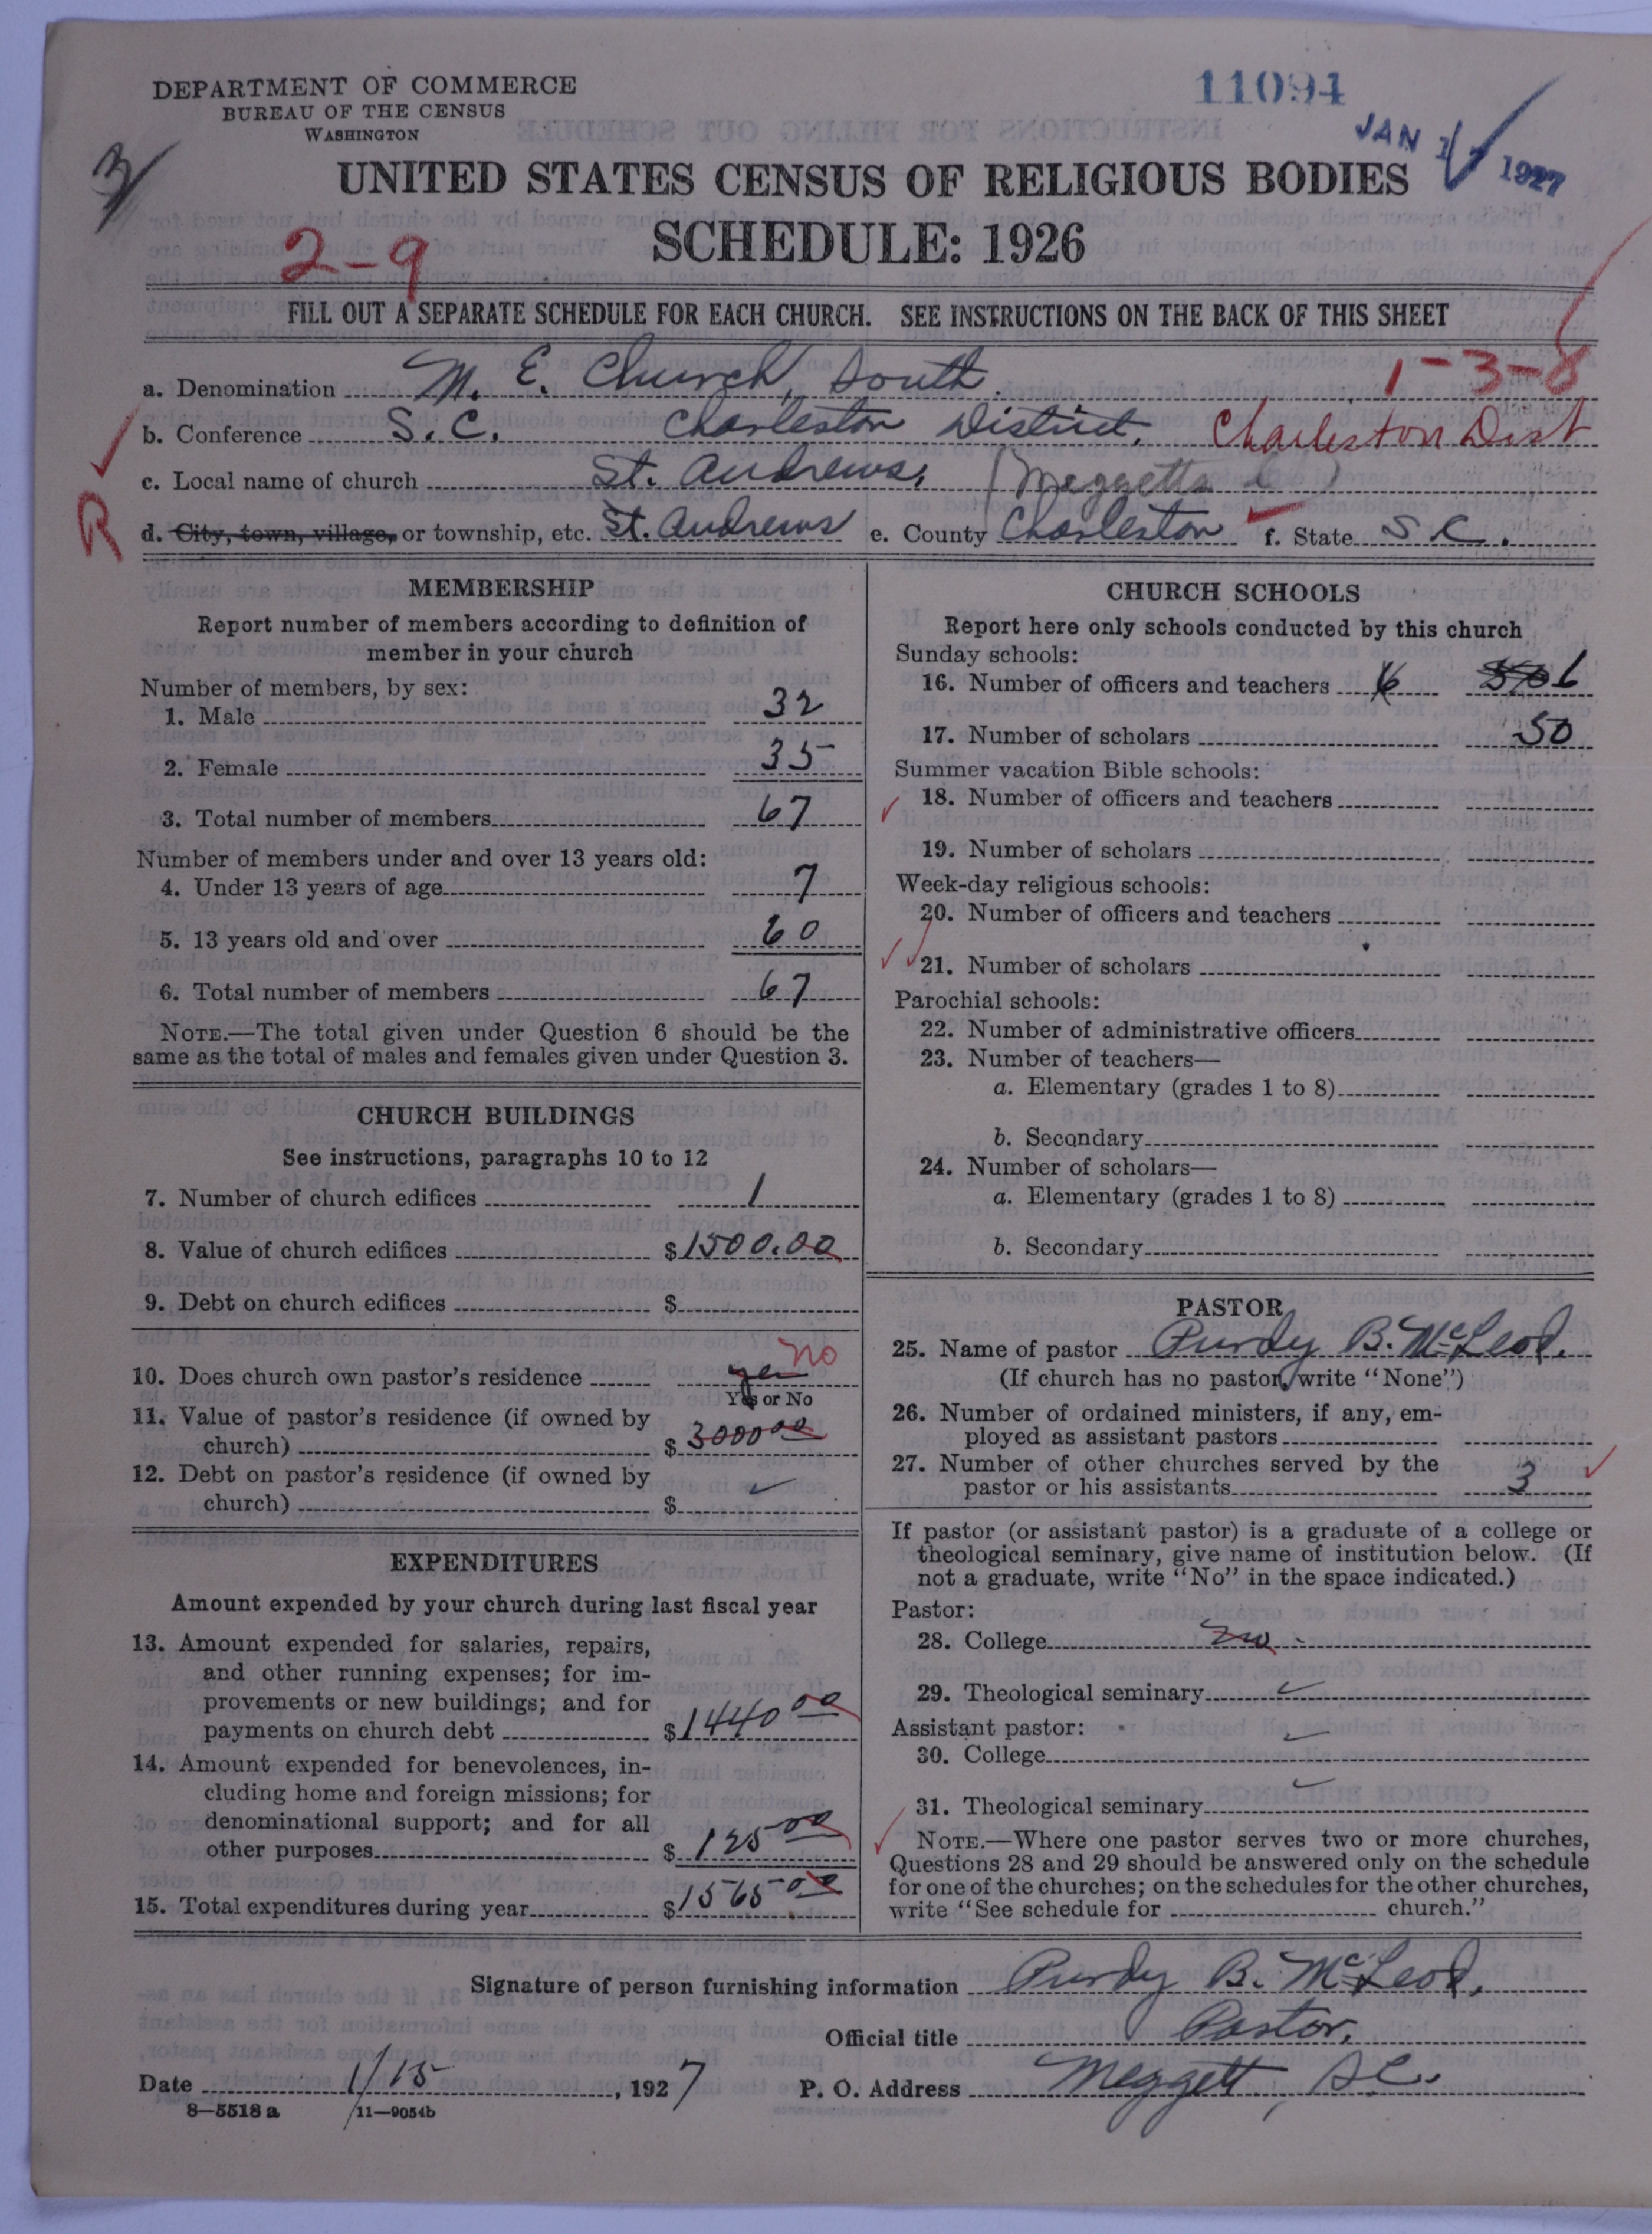 DEPARTMENT OF COMMERCE
BUREAU OF THE CENSUS
WASHINGTON
11094
JAN 17 1927
3
UNITED STATES CENSUS OF RELIGIOUS BODIES
SCHEDULE: 1926
2-9
FILL OUT A SEPARATE SCHEDULE FOR EACH CHURCH. SEE INSTRUCTIONS ON THE BACK OF THIS SHEET
1-3-8
a. Denomination M. E. Church, South.
b. Conference S. C. Charleston District. Charleston Dist
c. Local name of church St. Andrews, (Meggetts C)
R
d. City, town, village, or township, etc. St. Andrews e. County Charleston f. State S C.
MEMBERSHIP
Report number of members according to definition of
member in your church
Number of members, by sex:
1. Male 32
2. Female 35
3. Total number of members 67
Number of members under and over 13 years old:
4. Under 13 years of age 7
5. 13 years old and over 60
6. Total number of members 67
NOTE.—The total given under Question 6 should be the
same as the total of males and females given under Question 3.
CHURCH BUILDINGS
See instructions, paragraphs 10 to 12
7. Number of church edifices 1
8. Value of church edifices $1500.00
9. Debt on church edifices $
10. Does church own pastor's residence yes no
Yes or No
11. Value of pastor's residence (if owned by
church) $3000 00
12. Debt on pastor's residence (if owned by
church) $
EXPENDITURES
Amount expended by your church during last fiscal year
13. Amount expended for salaries, repairs,
and other running expenses; for im-
provements or new buildings; and for
payments on church debt $1440 00
14. Amount expended for benevolences, in-
cluding home and foreign missions; for
denominational support; and for all
other purposes $125 00
15. Total expenditures during year $1565 00
CHURCH SCHOOLS
Report here only schools conducted by this church
Sunday schools:
16. Number of officers and teachers 6 6
17. Number of scholars 50
Summer vacation Bible schools:
18. Number of officers and teachers
19. Number of scholars
Week-day religious schools:
20. Number of officers and teachers
21. Number of scholars
Parochial schools:
22. Number of administrative officers
23. Number of teachers—
a. Elementary (grades 1 to 8)
b. Secondary
24. Number of scholars—
a. Elementary (grades 1 to 8)
b. Secondary
PASTOR
25. Name of pastor Purdy B. McLeod.
(If church has no pastor, write "None")
26. Number of ordained ministers, if any, em-
ployed as assistant pastors
27. Number of other churches served by the
pastor or his assistants 3
If pastor (or assistant pastor) is a graduate of a college or
theological seminary, give name of institution below. (If
not a graduate, write "No" in the space indicated.)
Pastor:
28. College no
29. Theological seminary
Assistant pastor:
30. College
31. Theological seminary
NOTE.—Where one pastor serves two or more churches,
Questions 28 and 29 should be answered only on the schedule
for one of the churches; on the schedules for the other churches,
write "See schedule for church."
Signature of person furnishing information Purdy B. McLeod.
Official title Pastor.
Date 1/15, 1927 P. O. Address Meggett, S.C.
8—5518 a 11—9054b